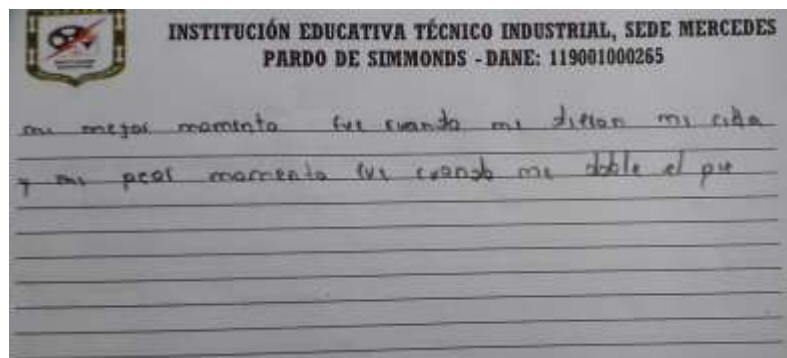 INSTITUCIÓN EDUCATIVA TÉCNICO INDUSTRIAL, SEDE MERCEDES
PARDO DE SIMMONDS - DANE: 119001000265
mi mejor momento fue cuando me dieron mi
y mi peor momento fue cuando me doble el pie